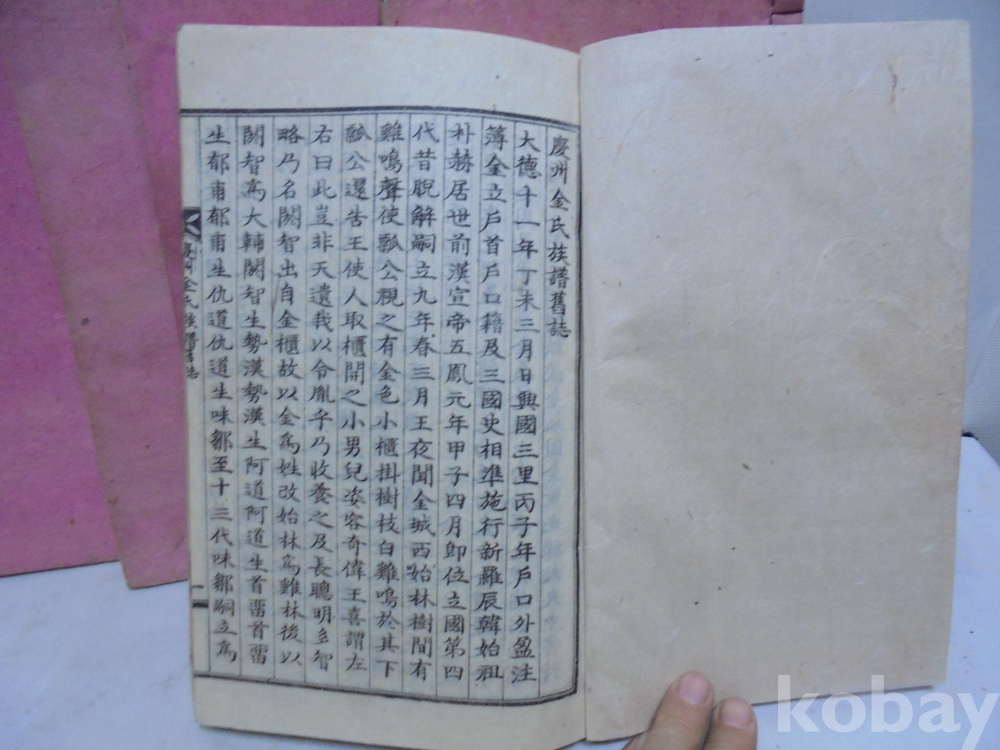 慶州金氏族譜舊誌
大德十一年丁未三月日興國三里丙子年戶口外盈注
簿金立戶首戶口籍及三國史相準施行新羅辰韓始祖
朴赫居世前漢宣帝五鳳元年甲子四月卽位立國第四
代昔脫解嗣立九年春三月王夜聞金城西始林樹間有
雞鳴聲使瓢公視之有金色小櫃掛樹枝白雞鳴於其下
瓢公還告王使人取櫃開之小男兒姿容奇偉王喜謂左
右曰此豈非天遺我以令胤乎乃收養之及長聰明多智
略乃名閼智出自金櫃故以金爲姓改始林爲雞林後以
閼智爲大輔閼智生勢漢勢漢生阿道阿道生首留首留
生郁甫郁甫生仇道仇道生味鄒至十三代味鄒嗣立爲
慶州金氏族譜舊誌
一
kobay